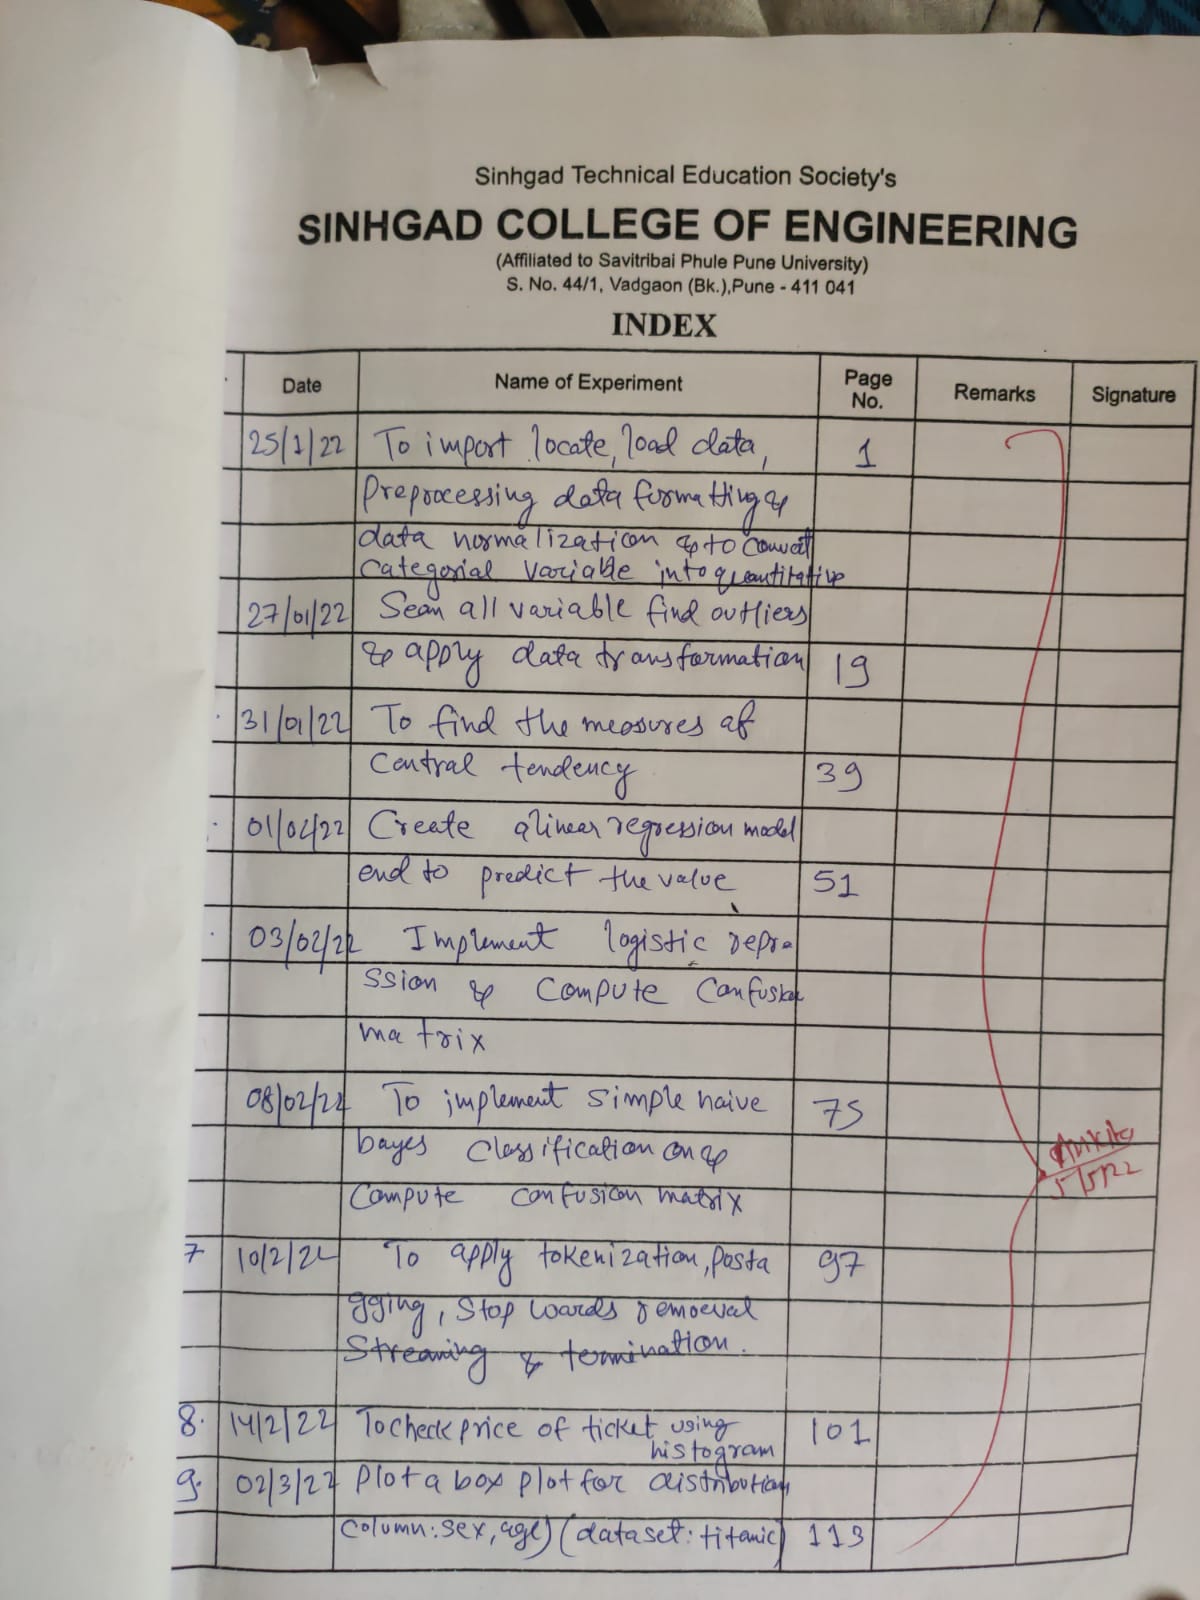 Sinhgad Technical Education Society's
SINHGAD COLLEGE OF ENGINEERING
(Affiliated to Savitribai Phule Pune University)
S. No. 44/1, Vadgaon (Bk.),Pune - 411 041
INDEX
Date Name of Experiment Page No. Remarks Signature
25/1/22 To import locate, load data, 1
Preprocessing data formatting &
data normalization & to convert
Categorial variable into quantitative
27/01/22 Sean all variable find outliers
& apply data transformation 19
31/01/22 To find the measures of
Central tendency 39
01/02/22 Create a linear regression model
end to predict the value 51
03/02/22 Implement logistic repre-
ssion & Compute Confusion
matrix
08/02/22 To implement simple naive 75
bayes Classification on &
Compute confusion matrix
7 10/2/22 To apply tokenization, posta 97
gging, Stop words removal
Streaming & termination.
8. 14/2/22 To check price of ticket using 101
histogram
9. 02/3/22 Plot a box plot for distribution
column: sex, age) (dataset: titanic) 113
Ankita
5/5/22